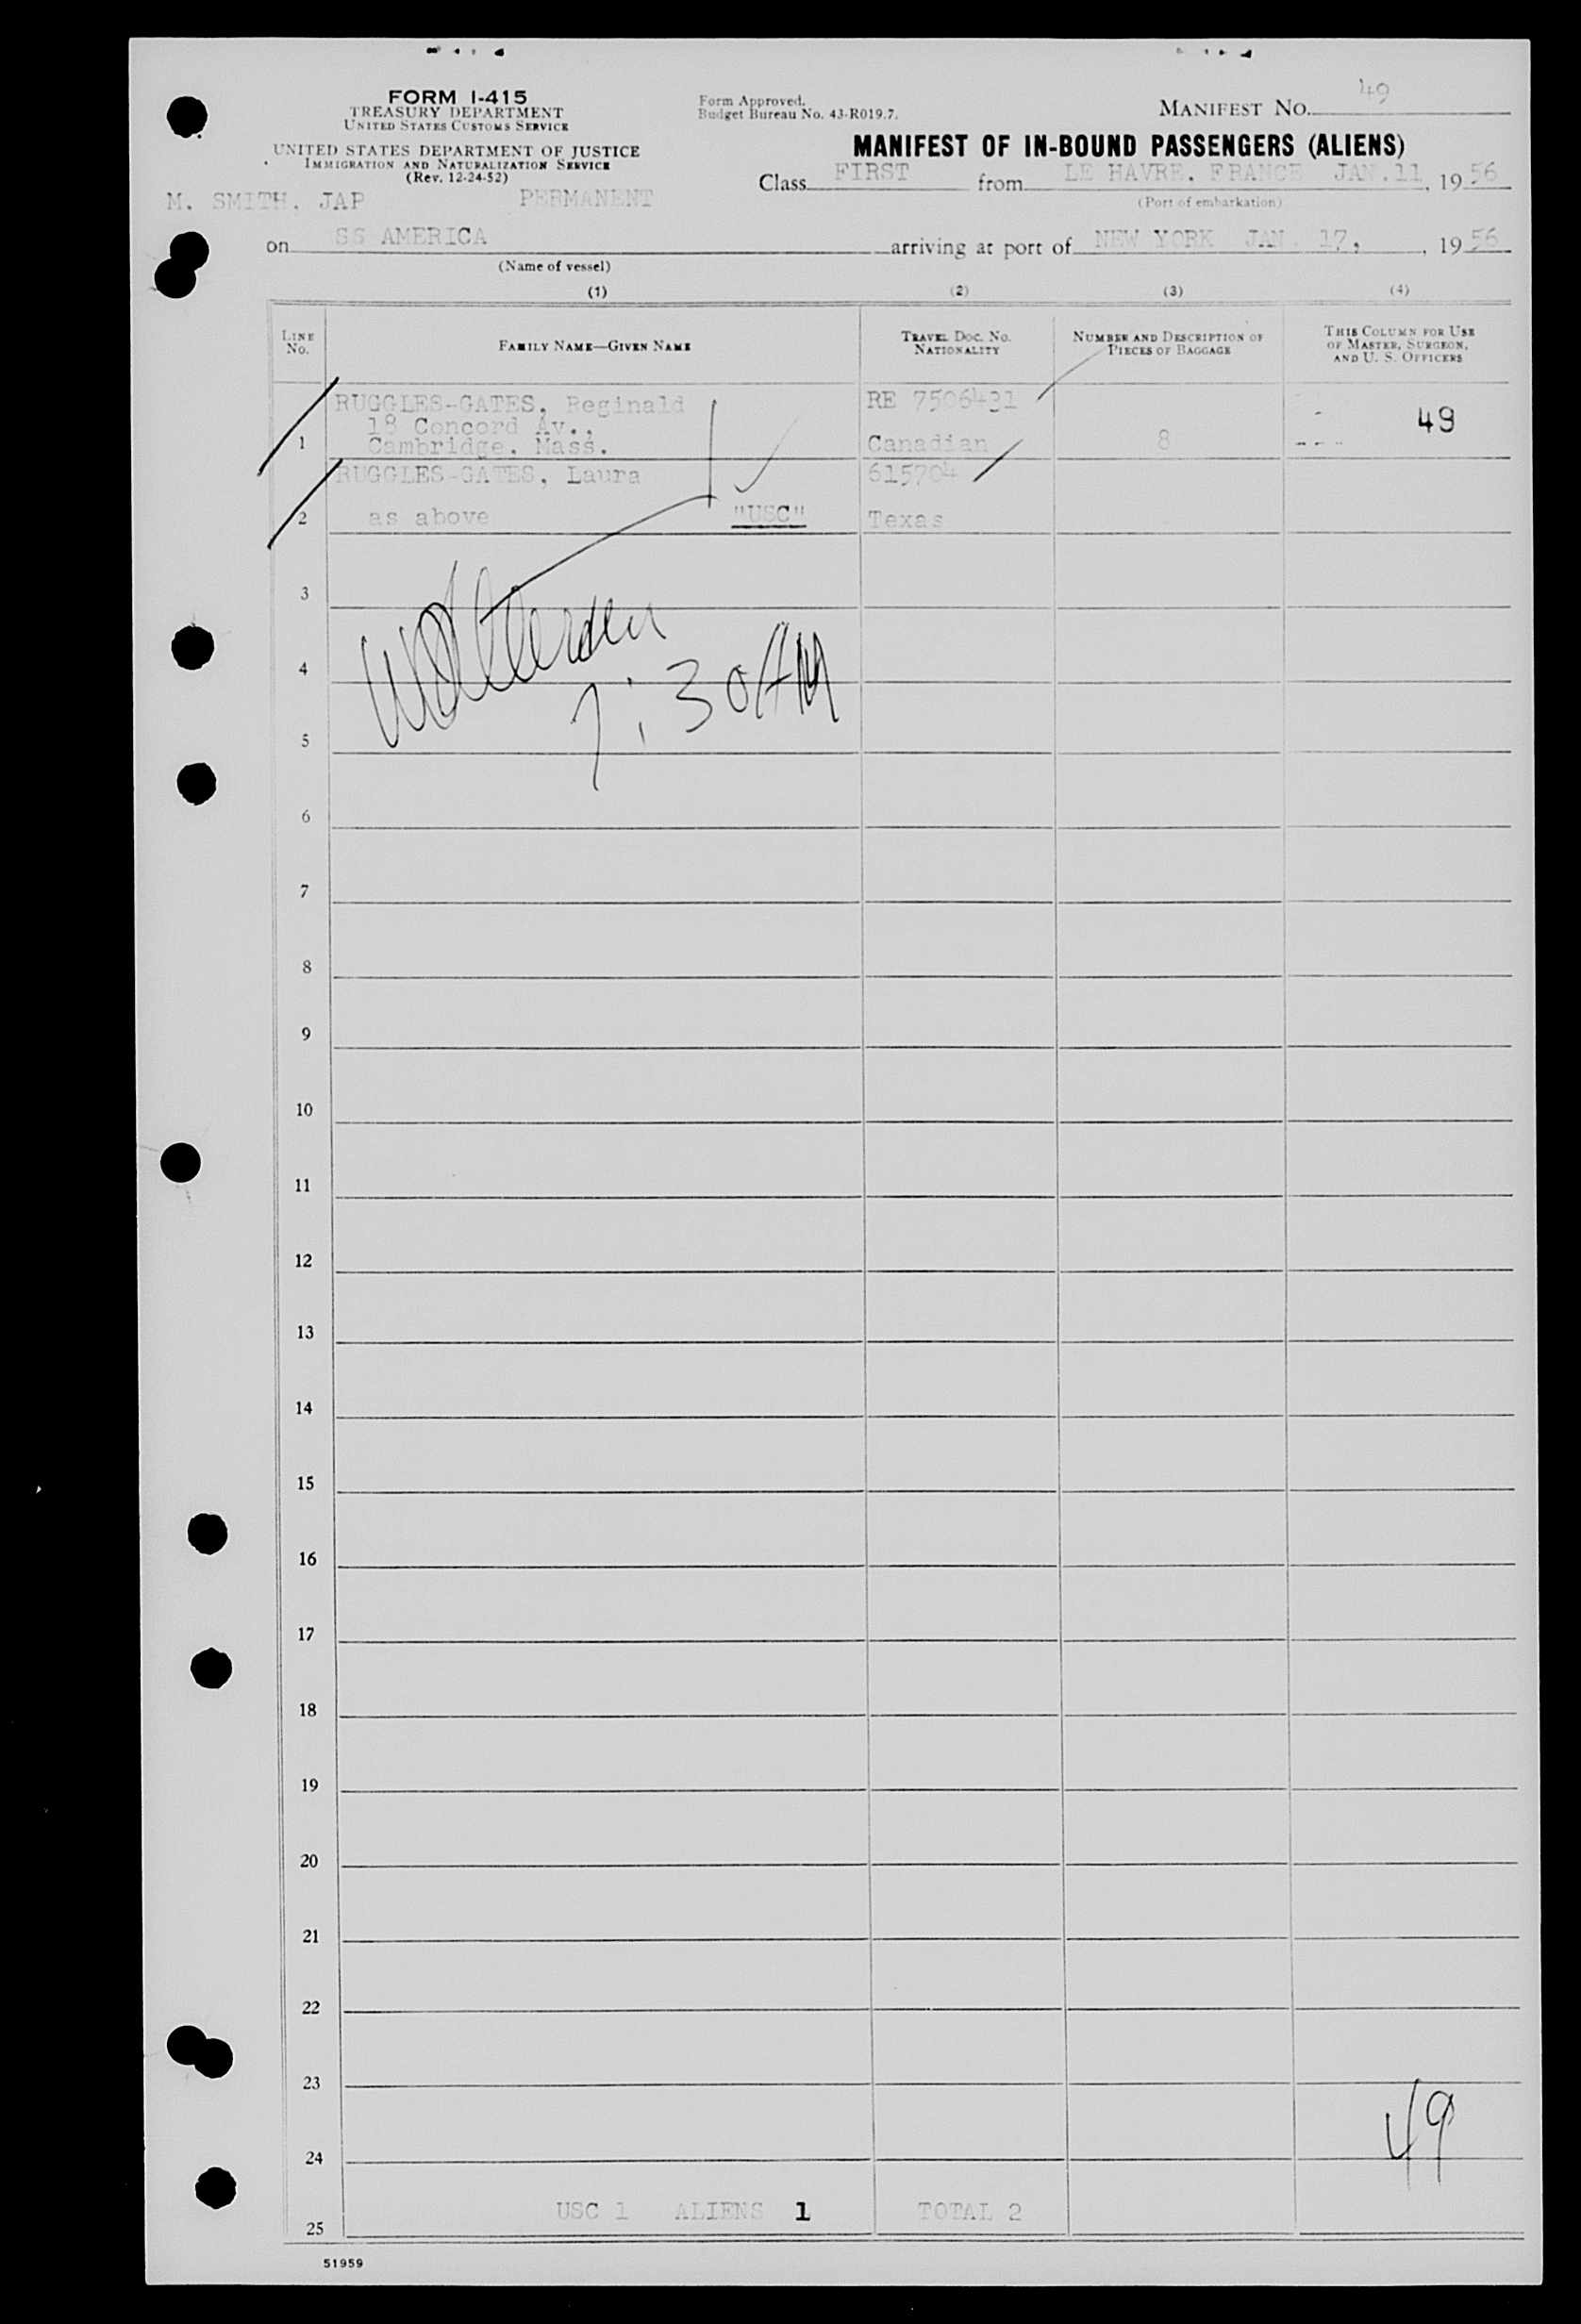 FORM I-415
TREASURY DEPARTMENT
UNITED STATES CUSTOMS SERVICE
UNITED STATES DEPARTMENT OF JUSTICE
IMMIGRATION AND NATURALIZATION SERVICE
(Rev. 12-24-52)
Form Approved.
Budget Bureau No. 43-R019.7.
MANIFEST NO. 49
MANIFEST OF IN-BOUND PASSENGERS (ALIENS)
Class FIRST from LE HAVRE. FRANCE JAN.11, 1956
(Port of embarkation)
M. SMITH. JAP PERMANENT
on SS AMERICA arriving at port of NEW YORK JAN. 17, , 1956
(Name of vessel)
(1) (2) (3) (4)
LINE NO. FAMILY NAME—GIVEN NAME TRAVEL DOC. NO. NATIONALITY NUMBER AND DESCRIPTION OF PIECES OF BAGGAGE THIS COLUMN FOR USE OF MASTER, SURGEON, AND U. S. OFFICERS
RUGGLES-GATES, Reginald RE 7506431
18 Concord Av.,
1 Cambridge, Mass. Canadian 8 49
RUGGLES-GATES, Laura 615704
2 as above "USC" Texas
3
4
7:30AM
5
6
7
8
9
10
11
12
13
14
15
16
17
18
19
20
21
22
23
49
24
USC 1 ALIENS 1 TOTAL 2
25
51959